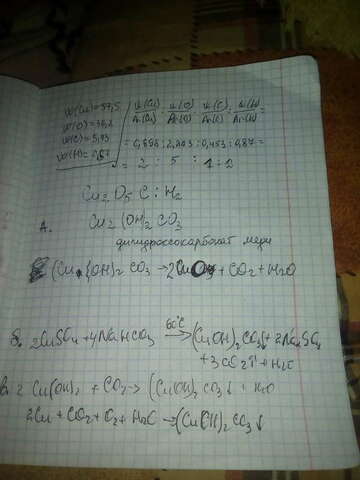 w(Cu)=57,5
w(O)=36,2
w(C)=5,43
w(H)=0,87
w(Cu)/Ar(Cu) : w(O)/Ar(O) : w(C)/Ar(C) : w(H)/Ar(H) =
= 0,898 : 2,263 : 0,453 : 0,87 =
= 2 : 5 : 1 : 2
Cu2 O5 C : H2
А. Cu2 (OH)2 CO3
дигидроксокарбонат меди
(Cu {OH)2 CO3 → 2CuO + CO2 + H2O
Б. 2CuSO4 + 4NaHCO3 60°C → (CuOH)2CO3↓ + 2Na2SO4
+ 3CO2↑ + H2O
в. 2 Cu(OH)2 + CO2 → (CuOH)2CO3↓ + H2O
2Cu + CO2 + O2 + H2O → (CuOH)2CO3↓